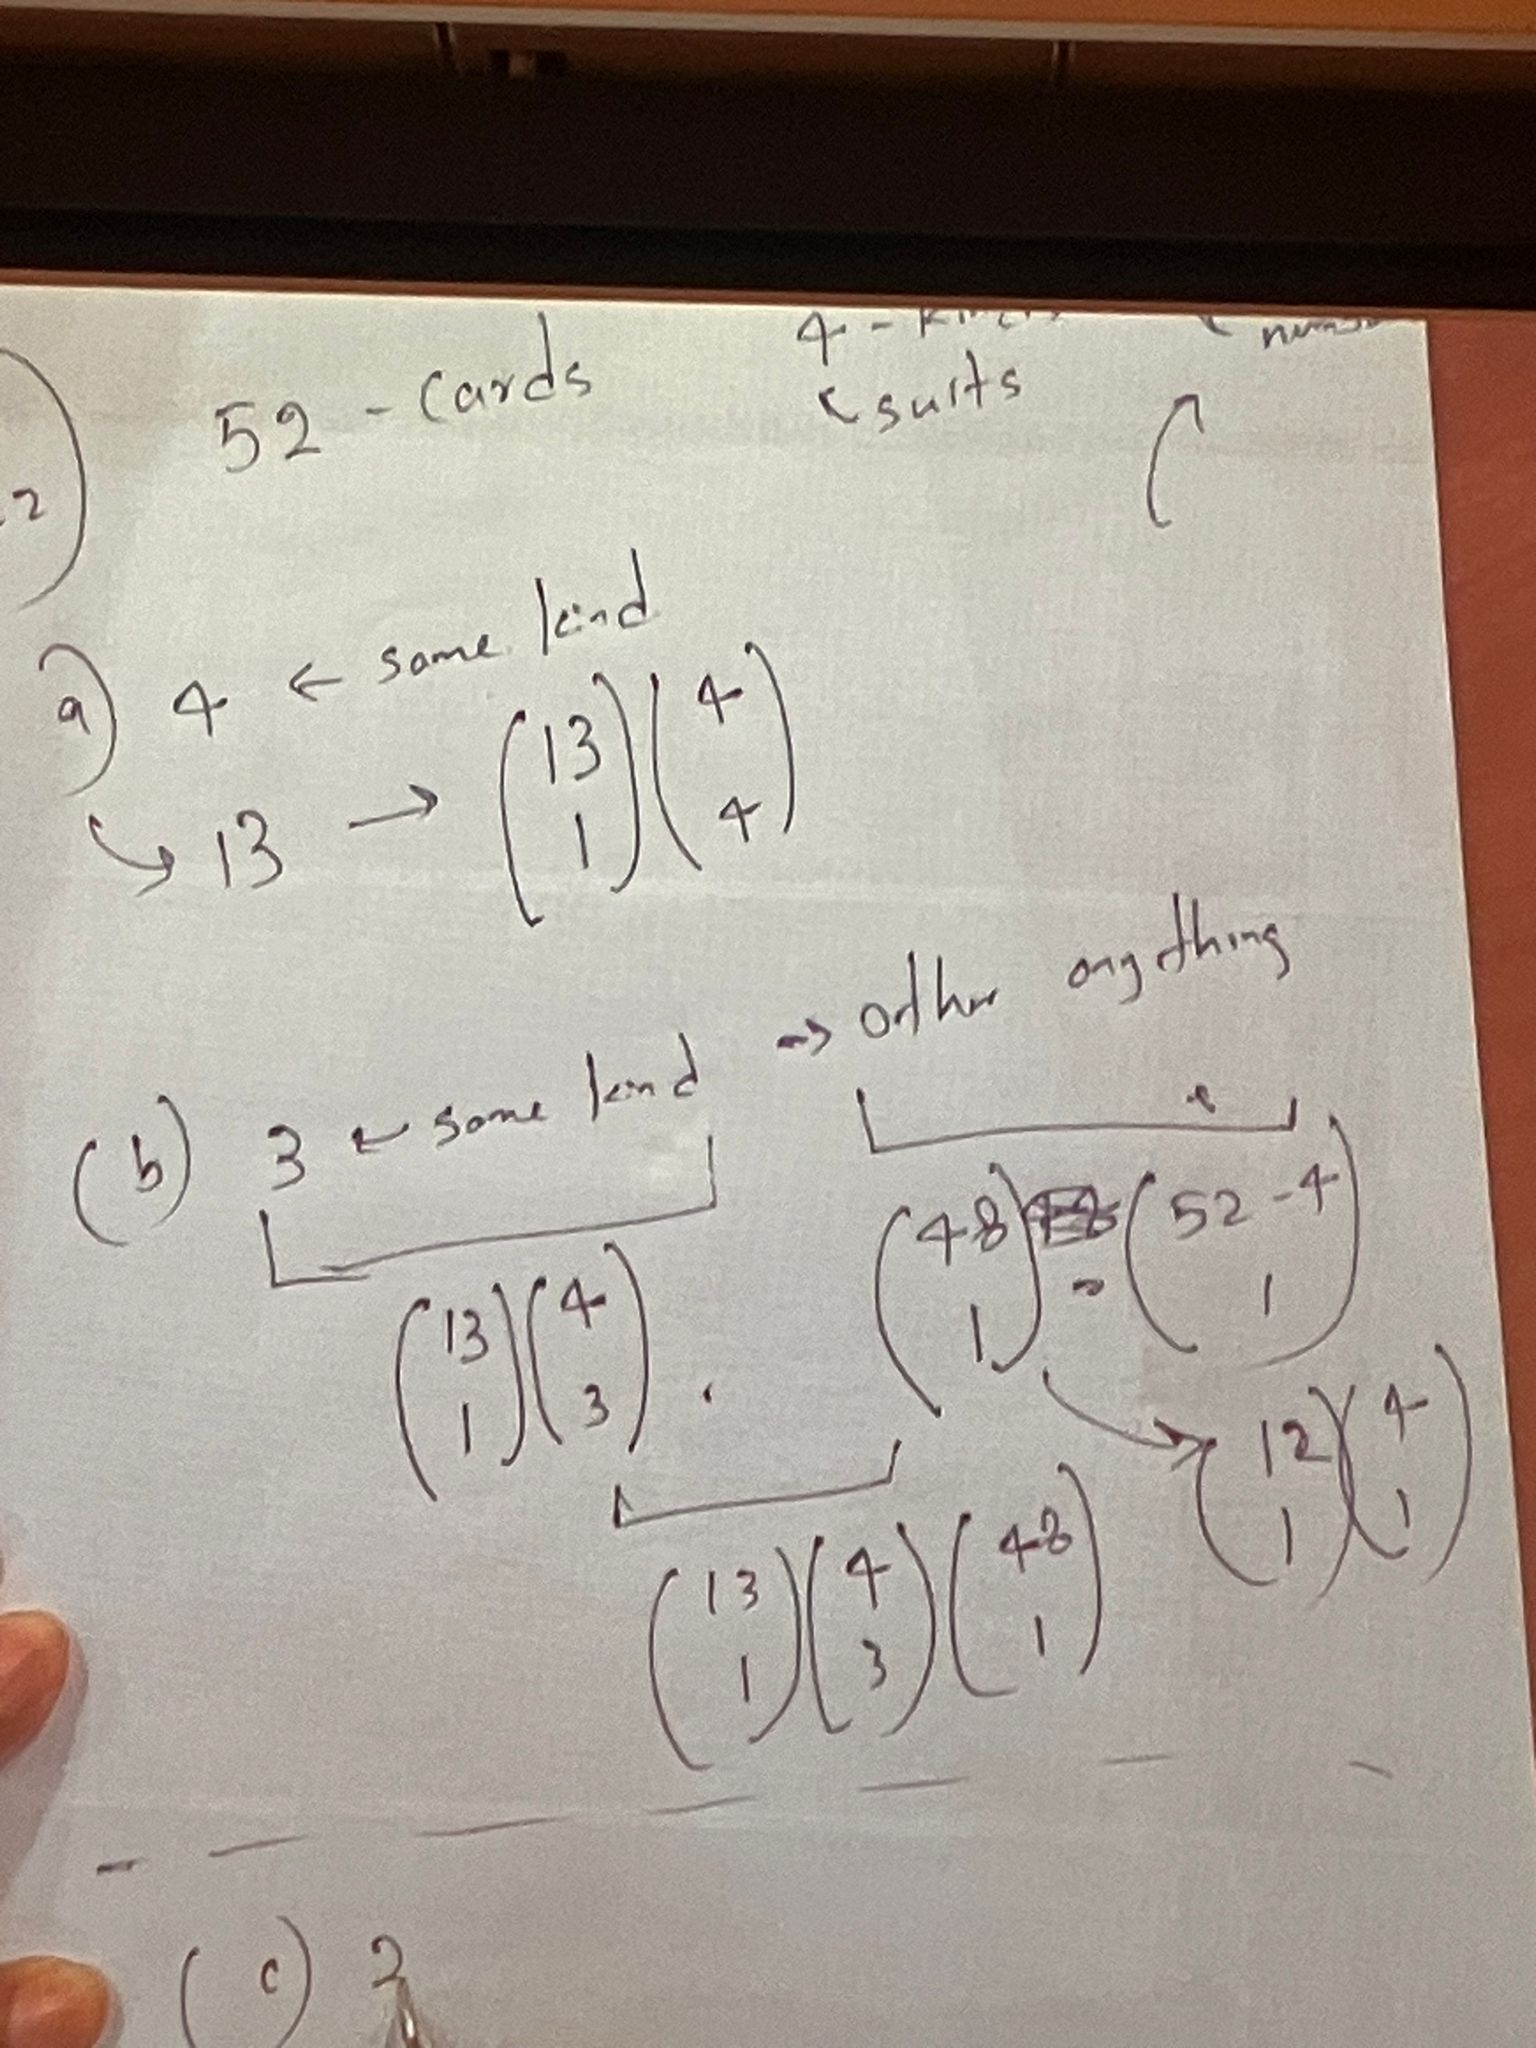 52 - cards
4 -
suits
2
a) 4 ← same kind
↳ 13 → (13 1)(4 4)
(b) 3 ← same kind → other anything
(13 1)(4 3) . (48 1) = (52-4 1)
(12 1)(4 1)
(13 1)(4 3)(48 1)
(c) 2